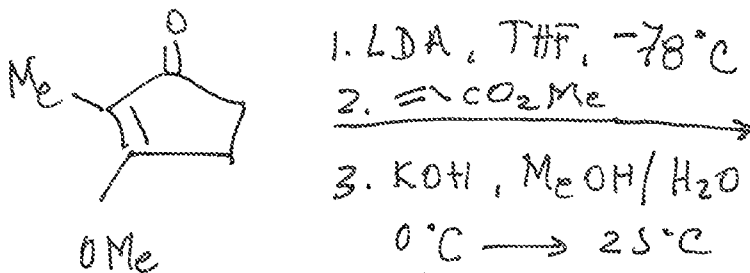 O
Me
OMe
1. LDA, THF, -78°C
2. CO₂Me
3. KOH, MeOH/H₂O
0°C → 25°C